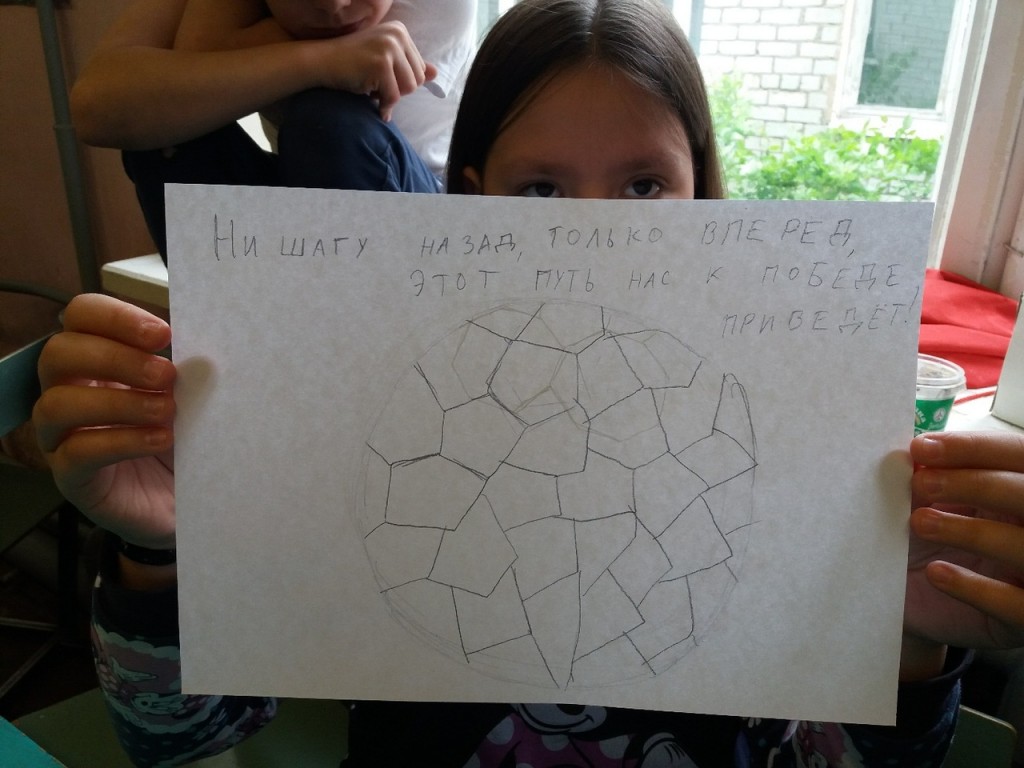 Ни шагу назад, только вперед,
этот путь нас к победе
приведёт!